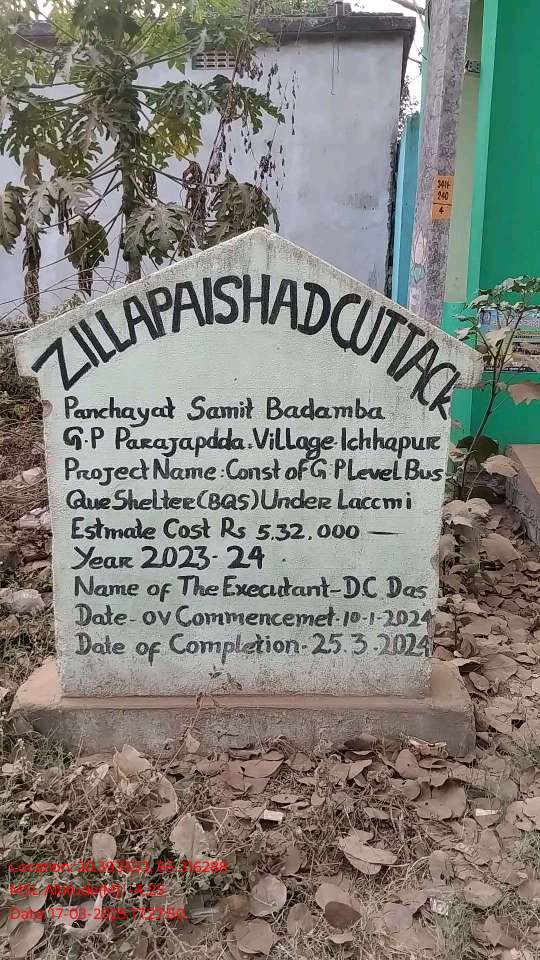 ZILLAPAISHADCUTTACK
Panchayat Samit Badamba
G.P Parajapdda.Village.Ichhapur
Project Name:Const of G P Level Bus
Que Shelter(BQS)Under Laccmi
Estmate Cost Rs 5,32,000 —
Year 2023-24
Name of The Executant-D.C Das
Date-ov Commencemet-10-1-2024
Date of Completion-25.3.2024
240
4
Location:
MSL Altitude(M):
Date: